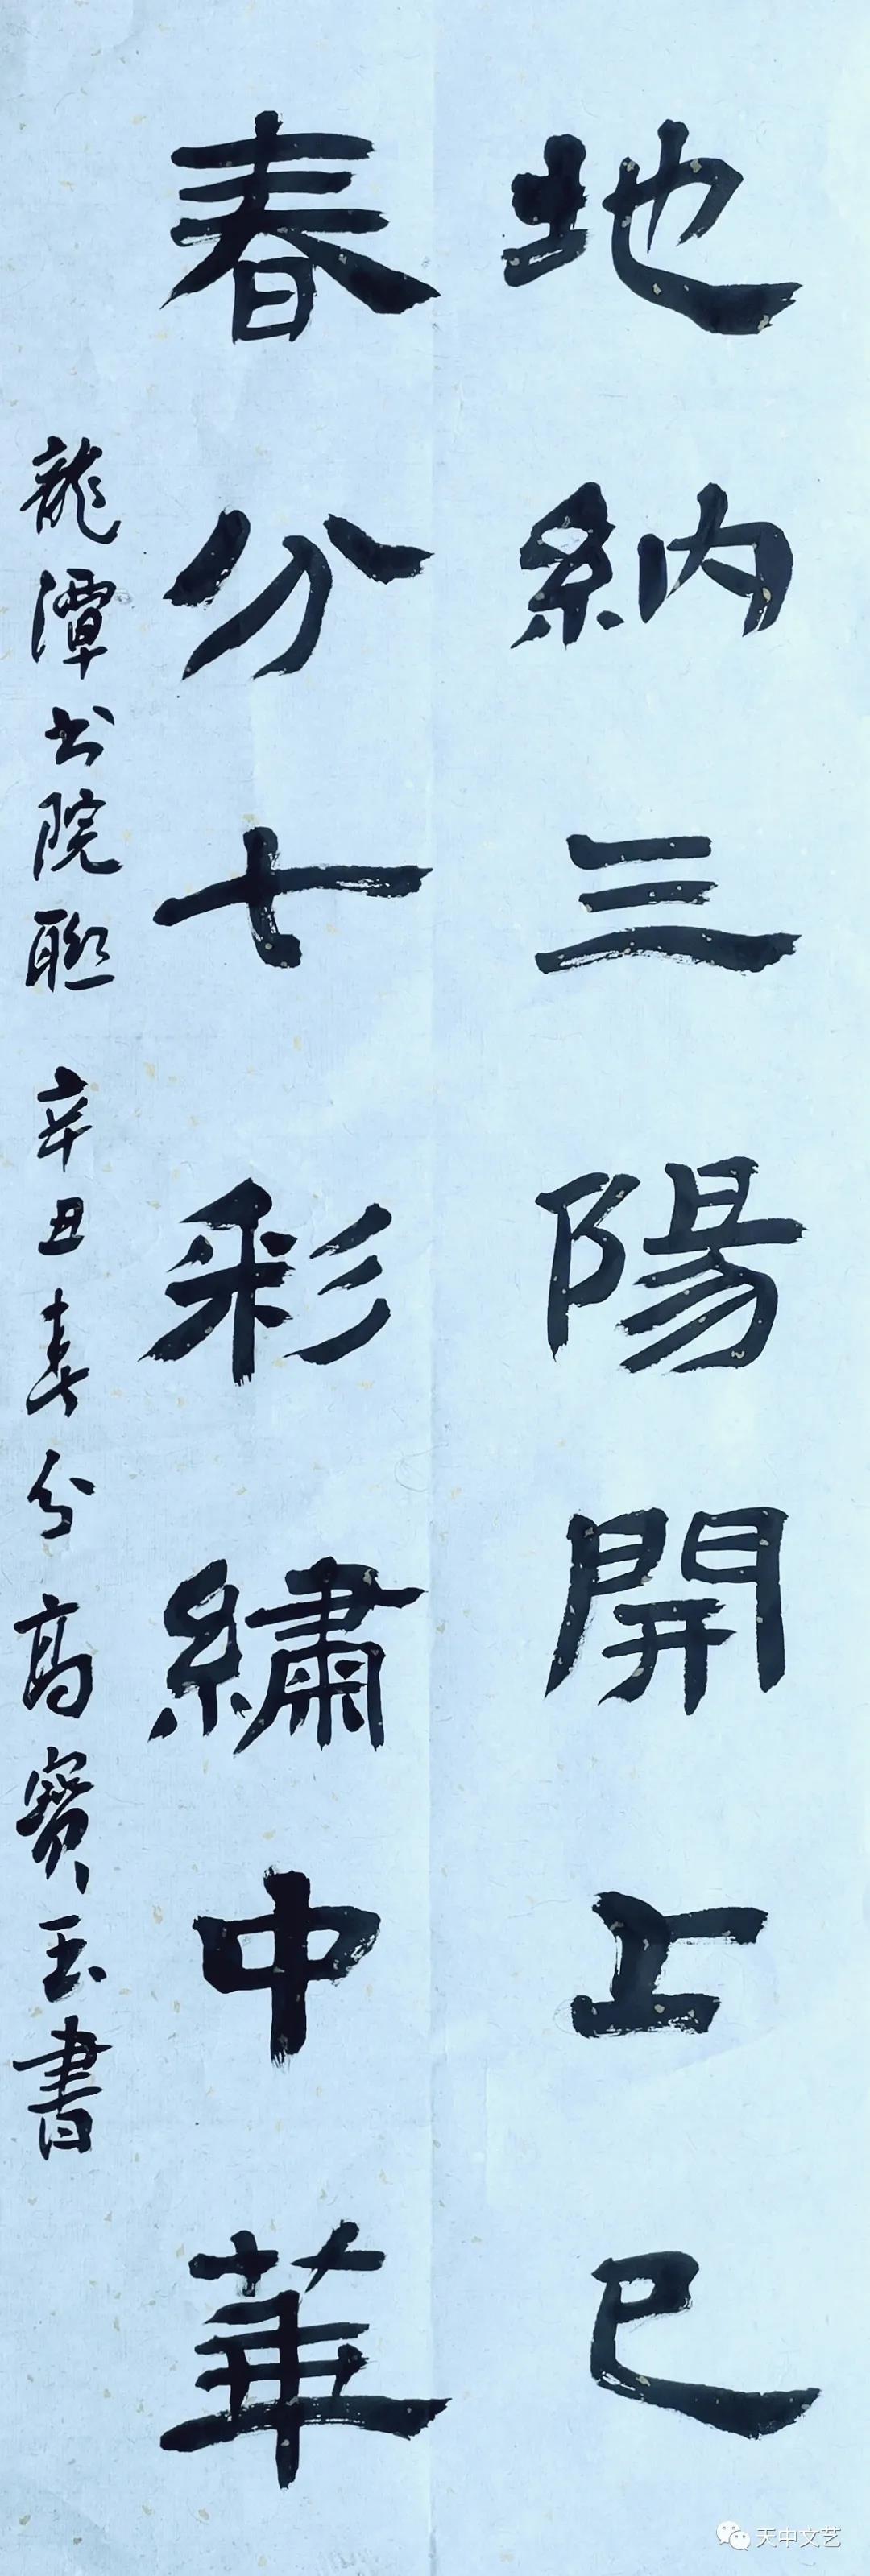 地納三陽開上巳
春分七彩繡中華
龍潭书院聯 辛丑春分 高寶玉書
天中文艺